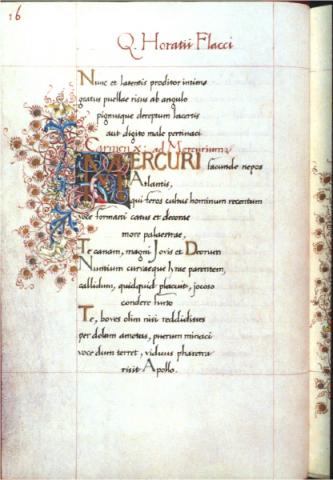 16
Q. Horatii Flacci
Nunc et latentis proditor intimo
gratus puellae risus ab angulo
pignusque dereptum lacertis
aut digito male pertinaci
Carmen X: ad Mercurium
MERCURI facunde nepos
Atlantis,
qui feros cultus hominum recentum
voce formasti catus et decorae
more palaestrae,
Te canam, magni Jovis et Deorum
Nuntium curvaeque lyrae parentem,
callidum, quidquid placuit, jocoso
condere furto
Te, boves olim nisi reddidisses
per dolum amotas, puerum minaci
voce dum terret, viduus pharetra
risit Apollo.